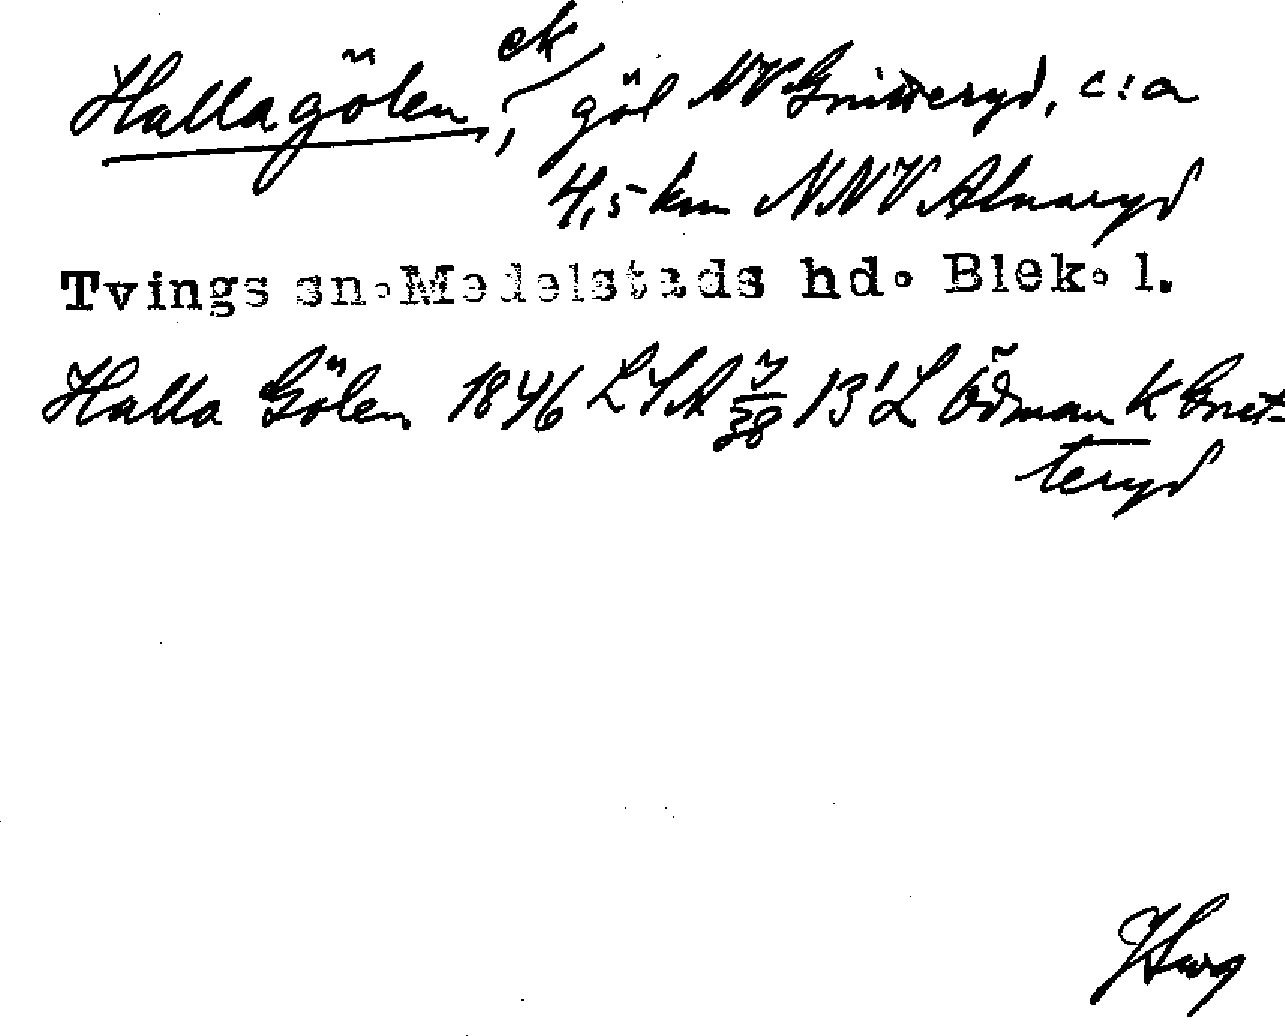 ek
Hallagölen, göl NV Gnitteryd, c:a
4,5 km NNV Alnaryd
Tvings sn. Medelstads hd. Blek. l.
Halla Gölen 1846 LSA 13 L Ödman K Gnit-
teryd